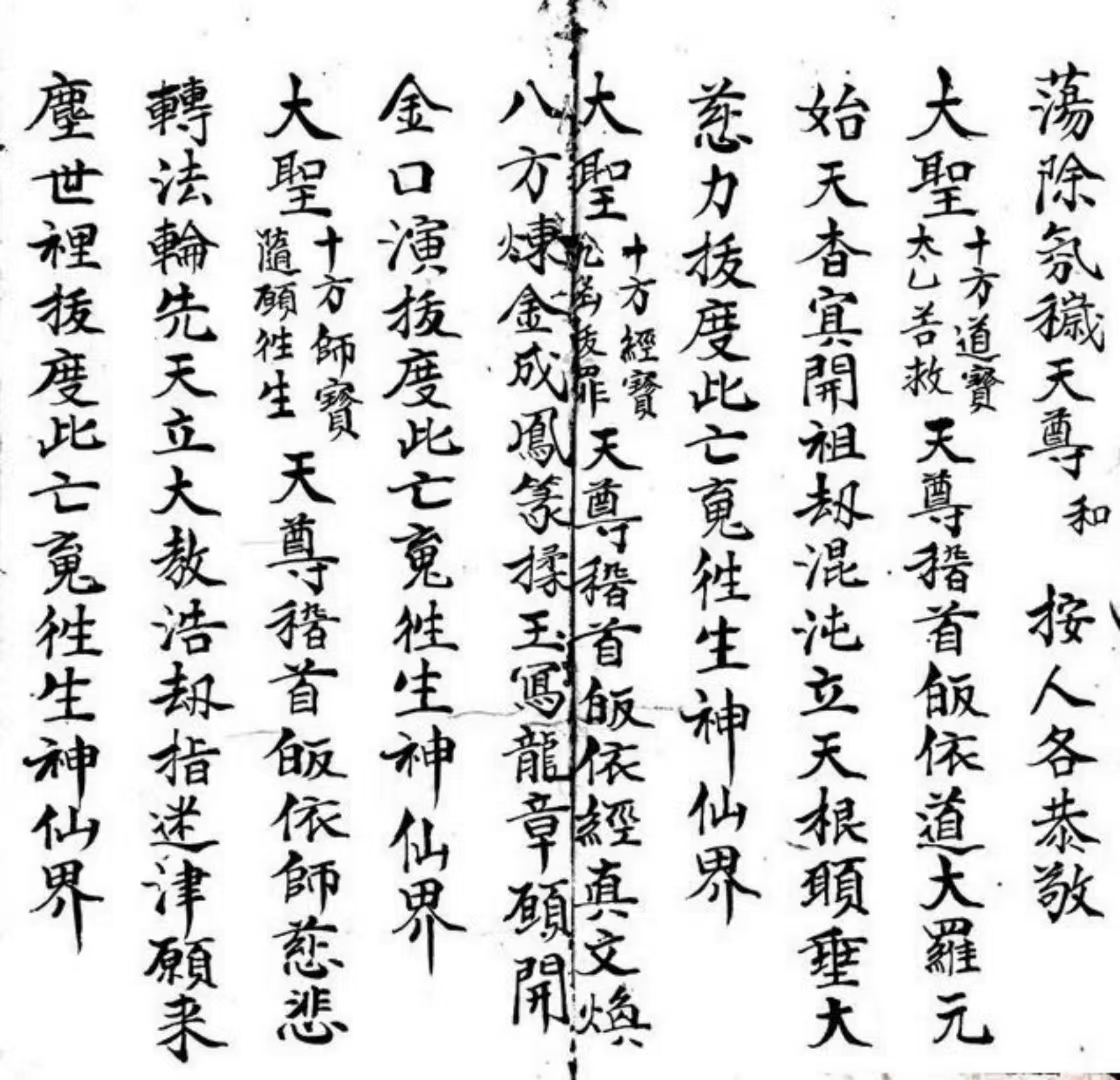 蕩除氛穢天尊 和 按人各恭敬
大聖 十方道寶 太乙苦救 天尊稽首皈依道大羅元
始天杳冥開祖劫混沌立天根願垂大
慈力拔度此亡䰟徃生神仙界
大聖 十方經寶 九幽拔罪 天尊稽首皈依經真文煥
八方煉金成鳳篆揉玉寫龍章願開
金口演拔度此亡䰟徃生神仙界
大聖 十方師寶 隨願徃生 天尊稽首皈依師慈悲
轉法輪先天立大教浩劫指迷津願来
塵世裡拔度此亡䰟徃生神仙界